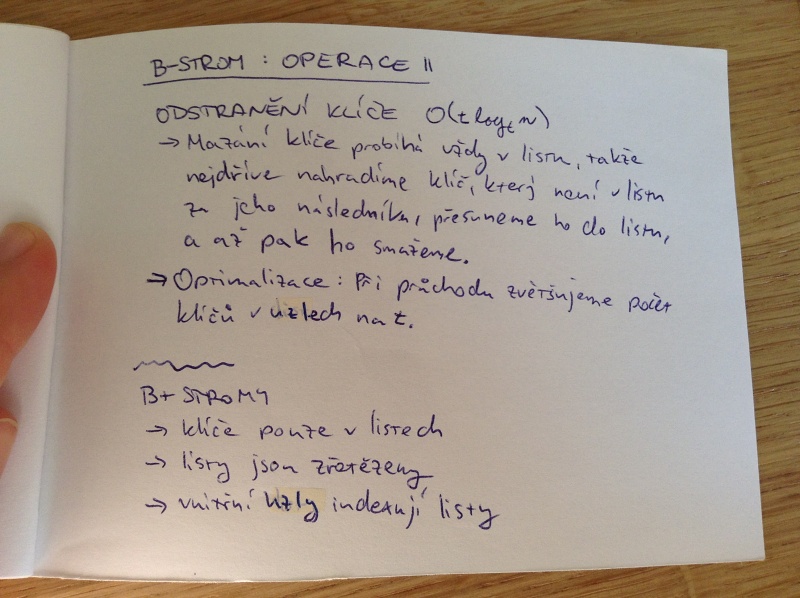 B-STROM : OPERACE II
ODSTRANĚNÍ KLÍČE O(t log_t n)
→ Mazání klíče probíhá vždy v listu, takže
nejdříve nahradíme klíč, který není v listu
za jeho následníka, přesuneme ho do listu,
a až pak ho smažeme.
→ Optimalizace : Při průchodu zvětšujeme počet
klíčů v uzlech na t.
B+ STROMY
→ klíče pouze v listech
→ listy jsou zřetězeny
→ vnitřní uzly indexují listy